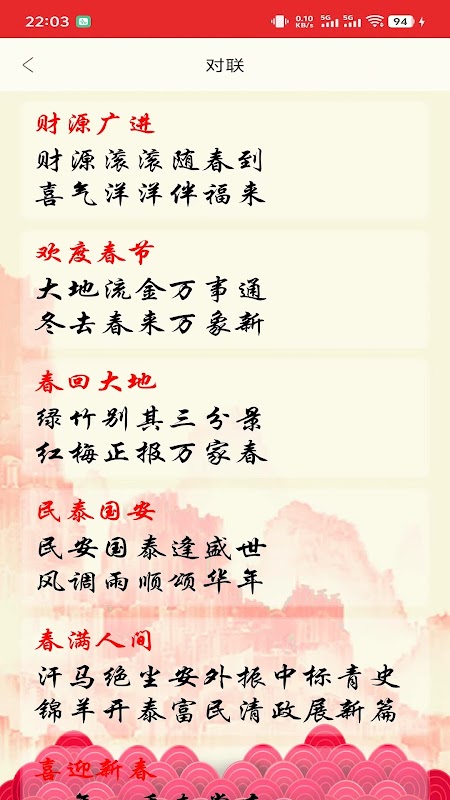 22:03
0.10 KB/s 5G 5G 94
对联
财源广进
财源滚滚随春到
喜气洋洋伴福来
欢度春节
大地流金万事通
冬去春来万象新
春回大地
绿竹别其三分景
红梅正报万家春
民泰国安
民安国泰逢盛世
风调雨顺颂华年
春满人间
汗马绝尘安外振中标青史
锦羊开泰富民清政展新篇
喜迎新春